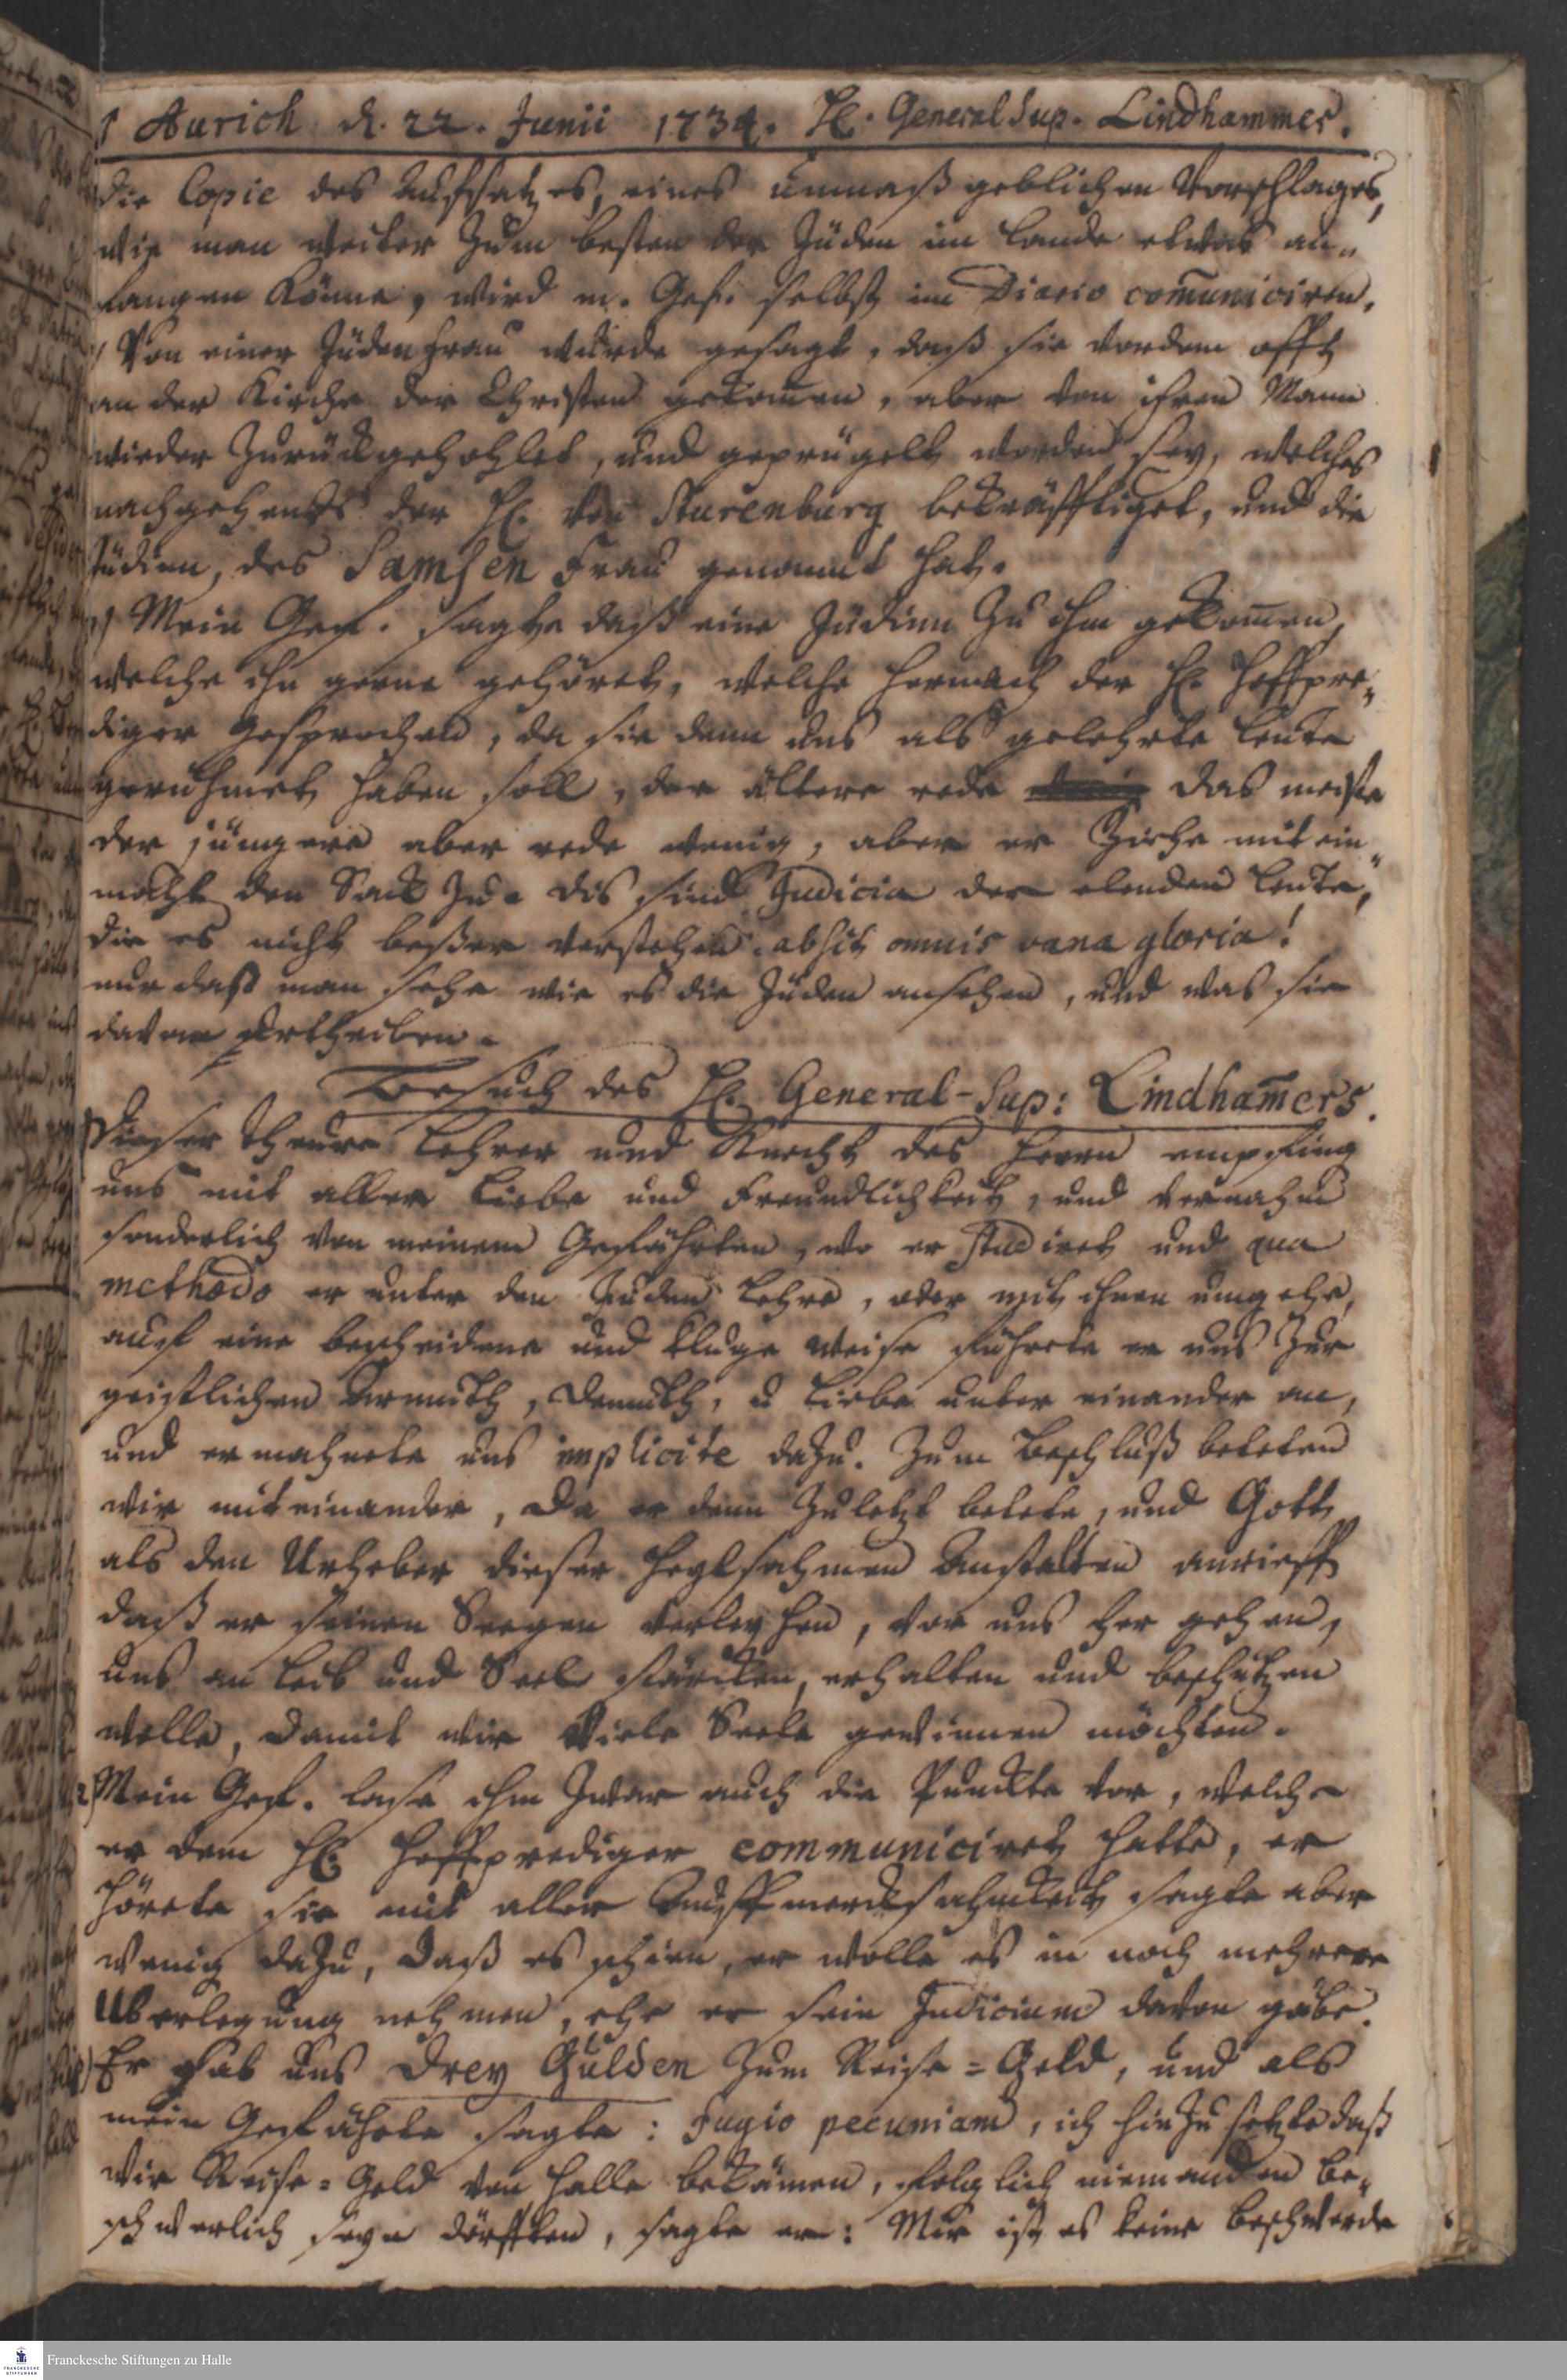 Aurich d. 22. Junii 1734. H. General Sup. Lindhammer.
die Copie des Aufsatzes, eines unmaßgeblichen Vorschlages,
wie man weiter zum besten der Jüden im Lande etwas an-
fangen könne, wird m. Gef. selbst im Diario com̄uniciren.
Von einer Jüdenfrau wurde gesagt, daß sie vordem offt
an der Kirche der Christen gekom̄en, aber von ihren Mann
wieder zurückgehohlet, und geprügelt worden sey, welches
nachgehends der H. von Sturenburg bekräfftiget, und die
Jüdinn, des Samsen Frau genannt hat.
Mein Gef. sagte daß eine Jüdinn zu ihm gekom̄en,
welche ihn gerne gehöret, welche hernach der H. Hoffpre-
diger gesprochen, da sie denn uns als gelehrte Leute
gerühmet haben soll, der ältere rede das meiste
der jüngere aber rede wenig, aber er ziehe mit ein
macht den Sack zu. Dis sind Judicia der elenden Leute,
die es nicht beßer verstehen. absit omnis vana gloria!
nur daß man sehe wie es die Jüden ansehen, und was sie
davon urtheilen.
Besuch des H. General-Sup: Lindham̄ers.
Dieser theure Lehrer und Knecht des Herrn empfing
uns mit aller Liebe und Freundlichkeit, und vernahm
sonderlich von meinem Gefährten, wo er studiret und qua
methodo er unter den Juden lehre, oder mit ihnen umgehe,
auf eine bescheidene und kluge Weise führete er uns zur
geistlichen Armuth, Demuth, u Liebe unter einander an,
und ermahnete uns implicite dazu. Zum Beschluß beteten
wir mit einander, da er denn zuletzt betete, und Gott
als den Urheber dieser heylsahmen Anstalten anrieff
daß er seinen Seegen verleyhen, vor uns her gehen,
uns an Leib und Seel stärcken, erhalten und beschützen
wolle, damit wir viele Seele gewinnen möchten.
2) Mein Gef. lase ihm zwar auch die Punckte vor, welche
er dem H. Hoffprediger communiciret hatte, er
hörete sie mit aller Auffmercksahmkeit sagte aber
wenig dazu, daß es schien, er wolle es in noch mehrere
Uberlegung nehmen, ehe er sein Judicium davon gäbe.
Er gab uns drey Gulden zum Reise-Geld, und als
mein Gefährte sagte: fugio pecuniam, ich hinzu setzte daß
wir Reise-Geld von Halle bekämen, folglich niemanden be-
schwerlich seyn dörfften, sagte er: Mir ist es keine Beschwerde
Franckesche Stiftungen zu Halle